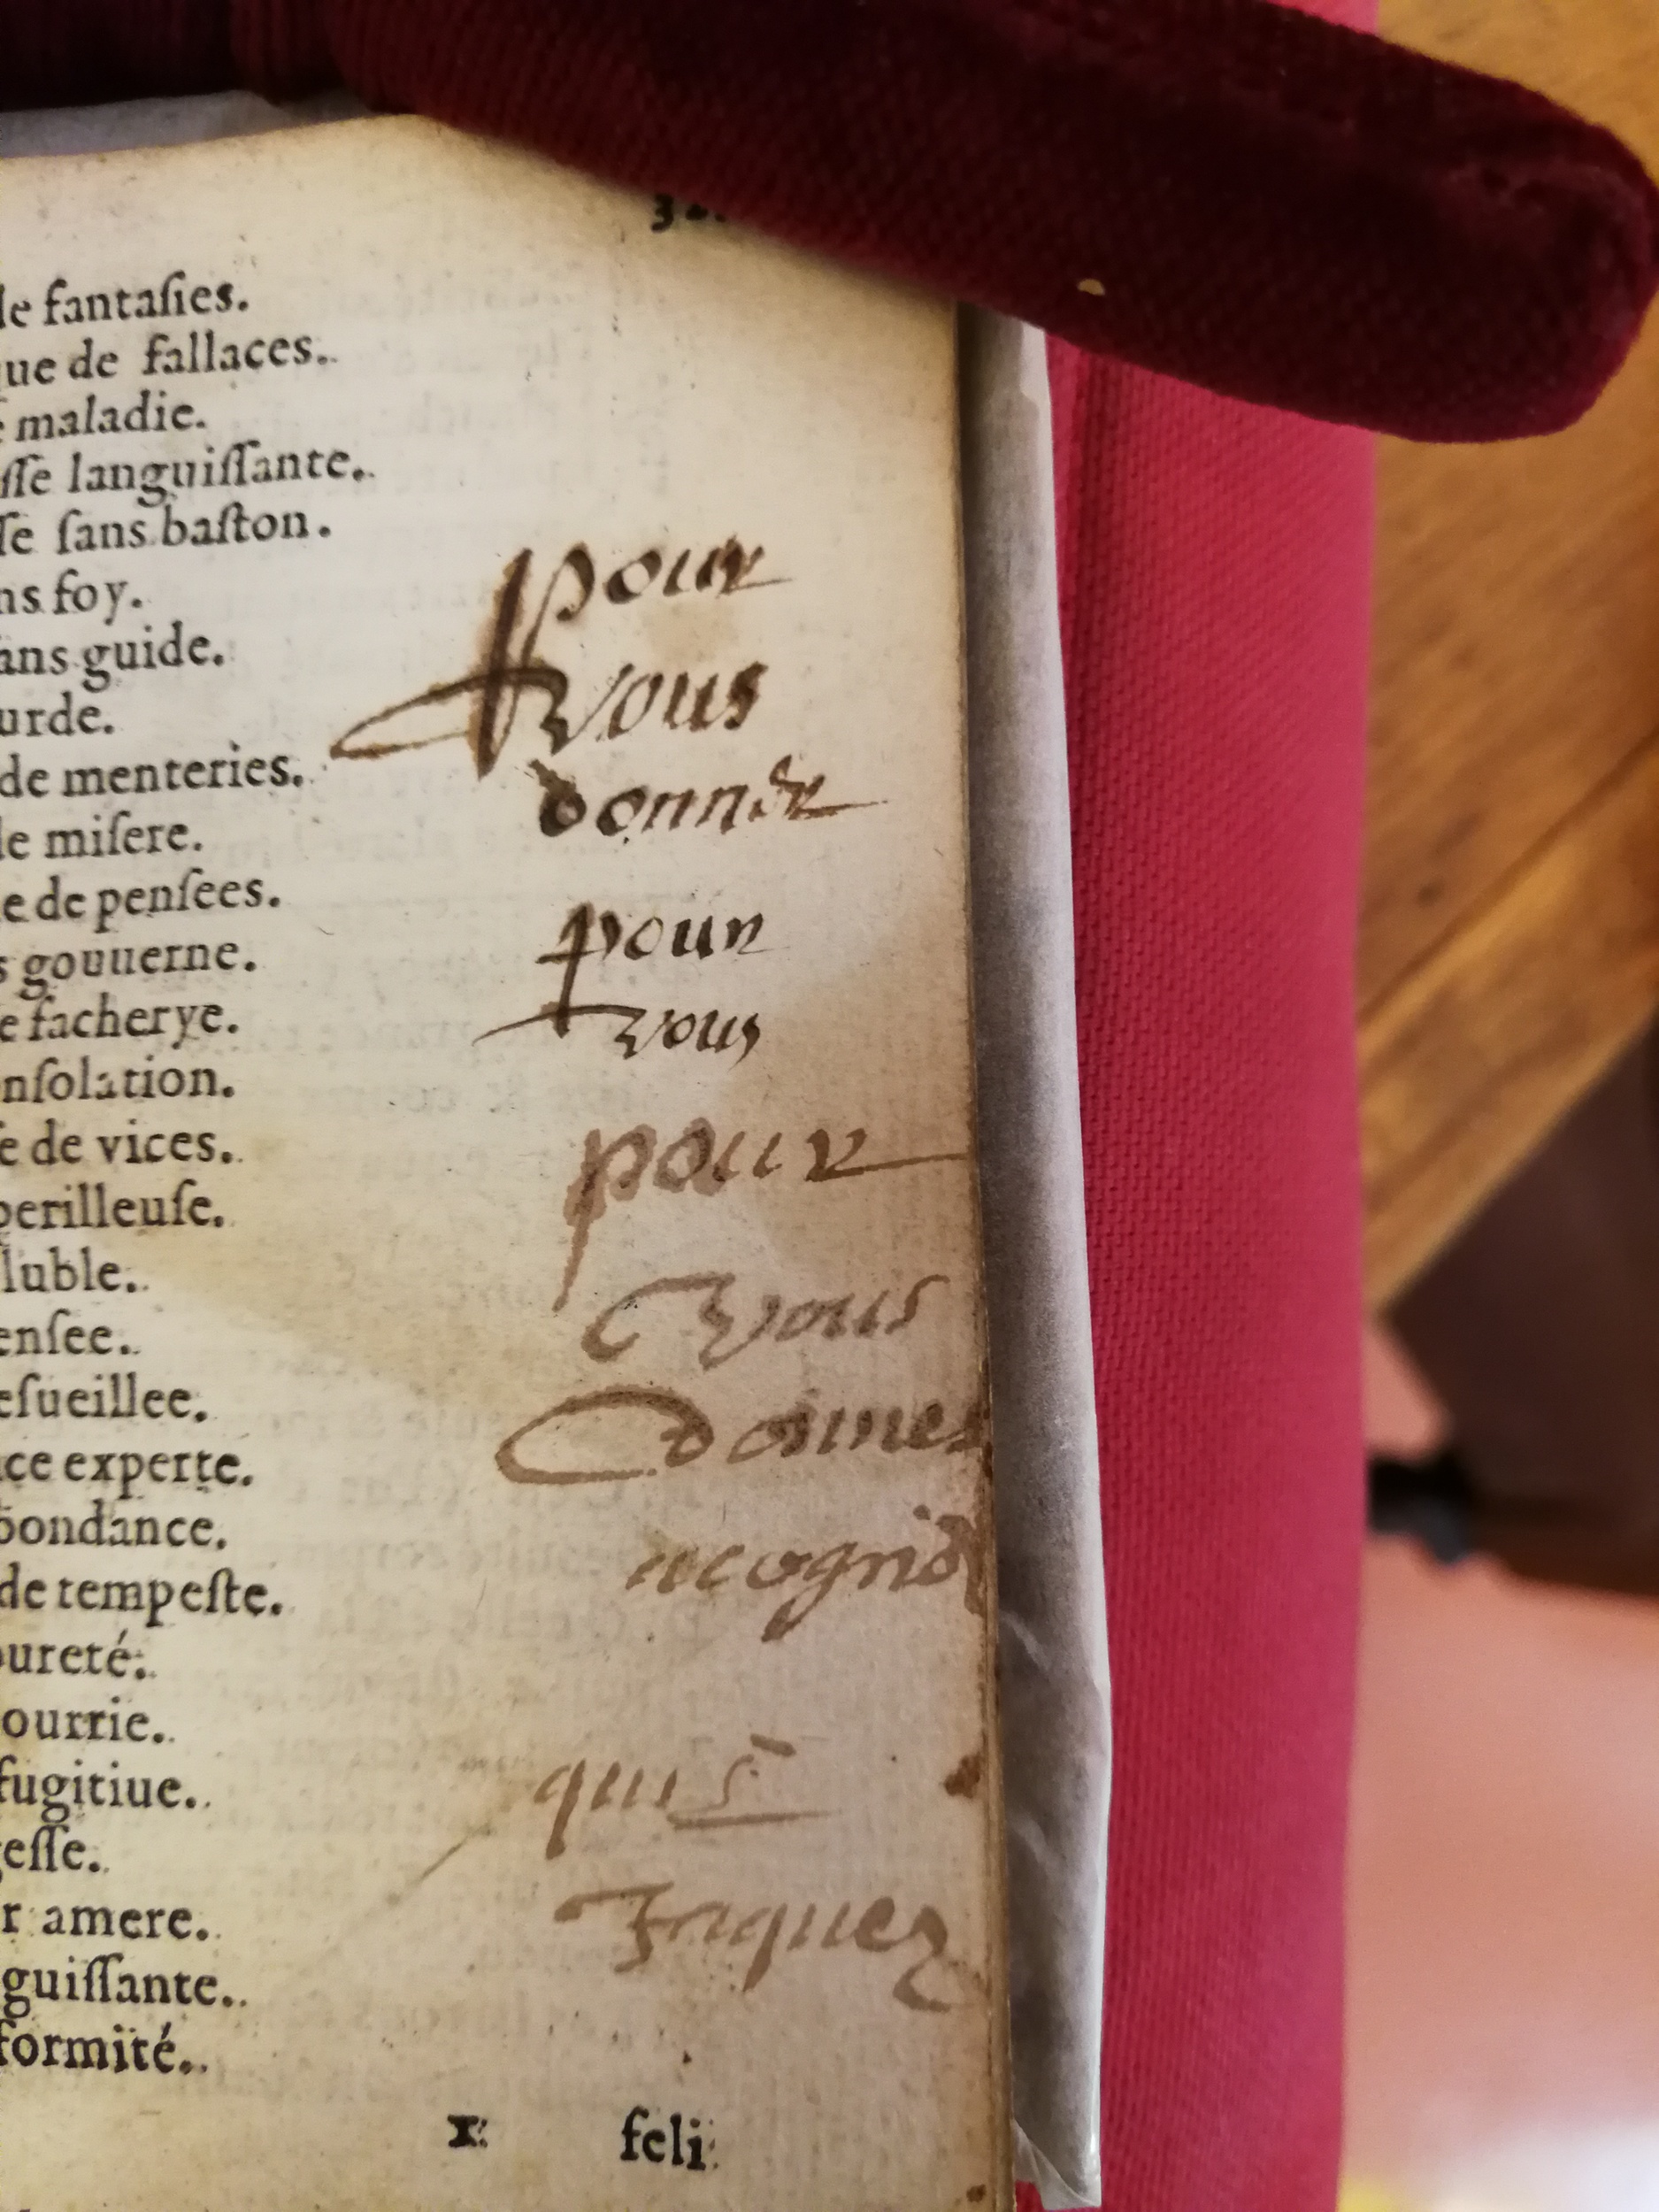 de fantaſies.
que de fallaces.
maladie.
ſſe languiſſante.
ſſe ſans baſton.
ns foy.
ans guide.
urde.
de menteries.
de miſere.
e de penſees.
s gouuerne.
e facherye.
nſolation.
ſe de vices.
perilleuſe.
luble.
enſee.
eſueillee.
ce experte.
bondance.
de tempeſte.
oureté.
ourrie.
fugitiue.
geſſe.
r amere.
guiſſante.
formité.
feli
pour
vous
donner
pour
vous
pour
vous
donner
acognio
quis
Jaquez